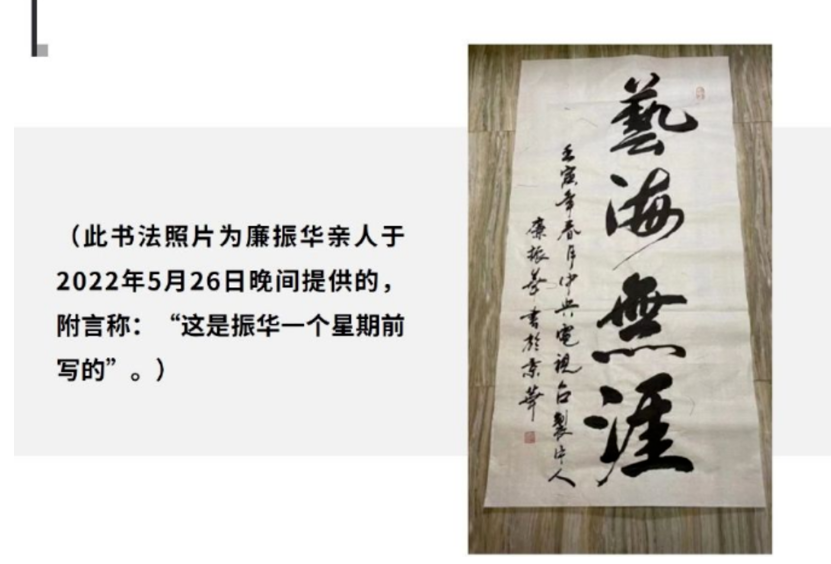 （此书法照片为廉振华亲人于
2022年5月26日晚间提供的，
附言称：“这是振华一个星期前
写的”。）
藝海無涯
壬寅年春月中央電視台製片人
廉振華書於京華